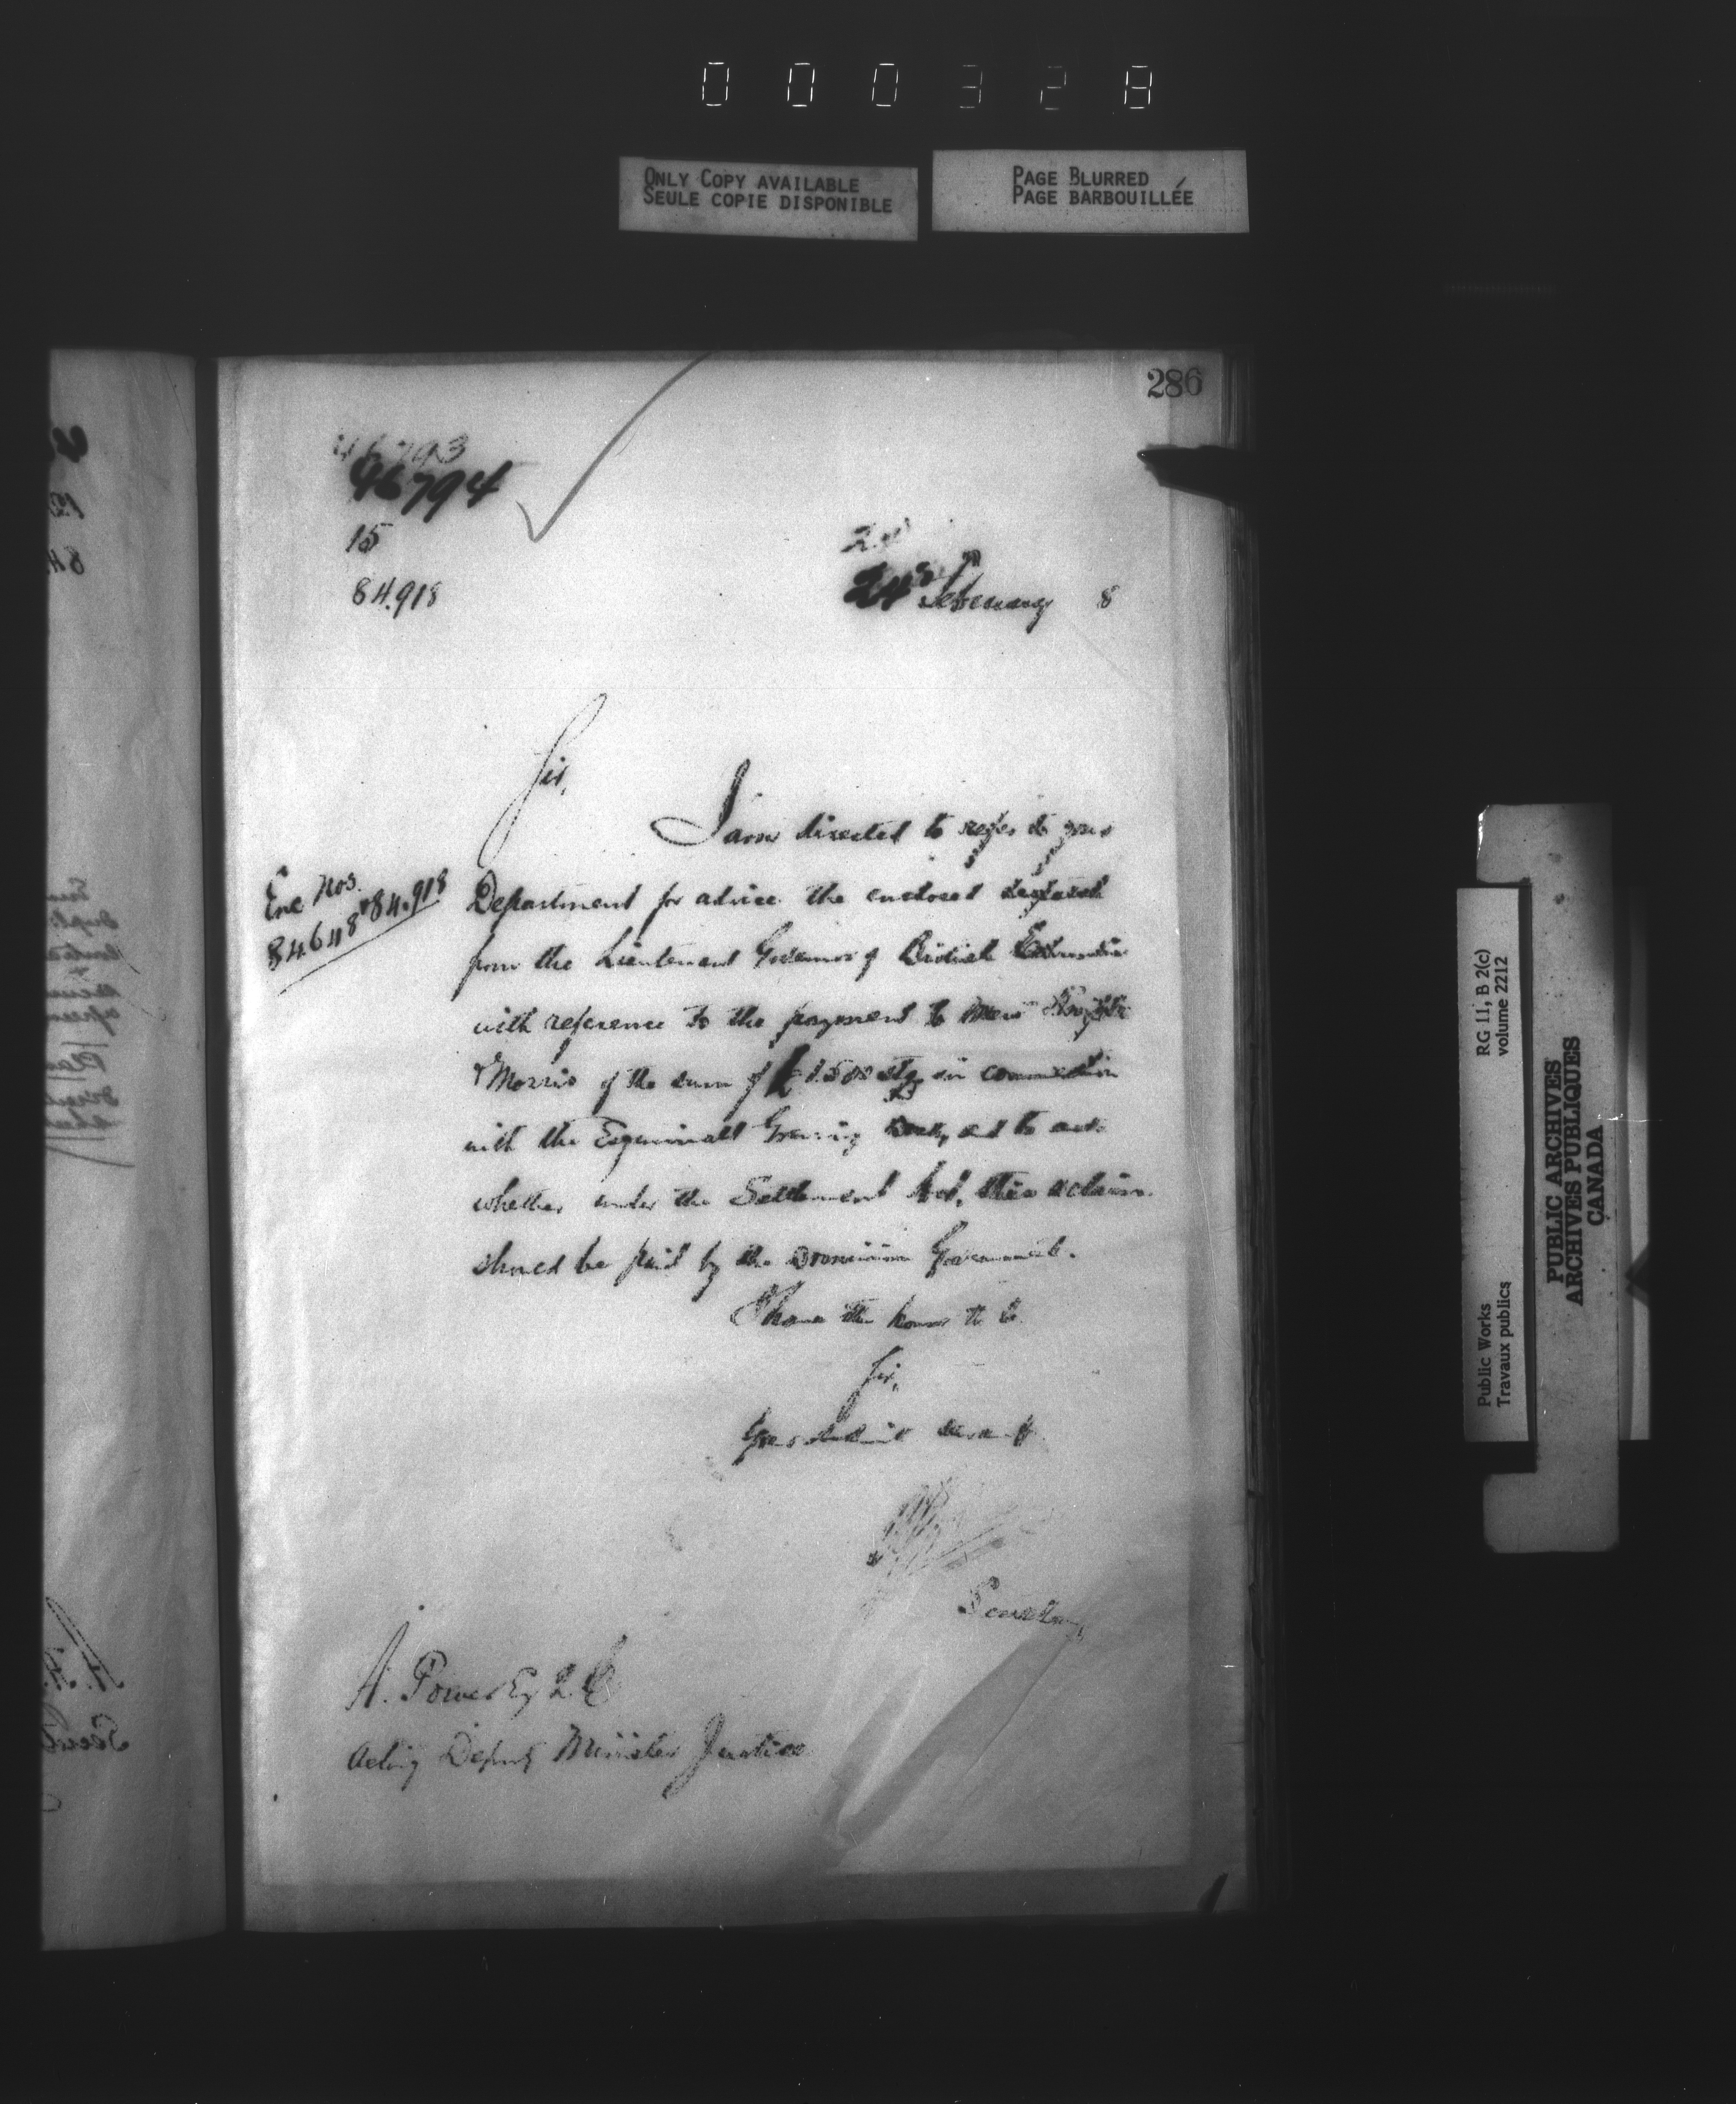 000328
ONLY COPY AVAILABLE
SEULE COPIE DISPONIBLE
PAGE BLURRED
PAGE BARBOUILLÉE
286
46793
46794
15
84.918
24 February 8
Sir,
I am directed to refer to your
Enc Nos.
84648 & 84.918
Department for advice the enclosed despatch
from the Lieutenant Governor of British Columbia
with reference to the payment to Mess
& Morris of the sum of £1500 stg in connection
with the Esquimalt Graving Dock, and to ask
whether under the Settlement Act, this claim
should be paid by the Dominion Government.
I have the honor to be
Sir,
Your obedient servant
Secretary
A. Power Esq Q.C
Acting Deputy Minister Justice
RG 11, B 2(c)
volume 2212
Public Works
Travaux publics
PUBLIC ARCHIVES
ARCHIVES PUBLIQUES
CANADA